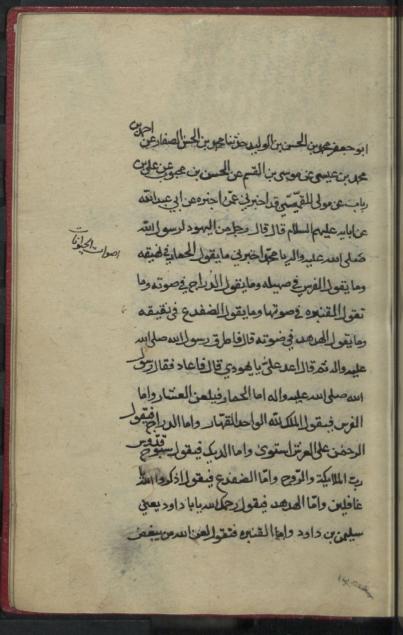 ابو جعفر محمد بن الحسن بن الوليد حدثنا محمد بن الحسن الصفار عن احمد بن
محمد بن عيسى عن موسى بن القسم عن الحسن بن محبوب عن علي بن
رياب عن مولى القميين قد اخبرني عمن اخبره عن ابي عبد الله
عن ابايه عليهم السلام قال قال رجل من اليهود لرسول الله
صلى الله عليه واله يا محمد اخبرني ما يقول الحمار في نهيقه
وما يقول الفرس في صهيله وما يقول الدراج في صوته وما
تقول القنبره في صوتها وما يقول الضفدع في نقيقه
وما يقول الهدهد في صوته قال فاطرق رسول الله صلى الله
عليه واله ثم قال اعد علي يا يهودي قال فاعاد فقال رسول
الله صلى الله عليه واله اما الحمار فيلعن العشار واما
الفرس فيقول الملك لله الواحد القهار واما الدراج فيقول
الرحمن على العرش استوى واما الديك فيقول سبوح قدوس
رب الملايكة والروح واما الضفدع فيقول اذكروا الله يا
غافلين واما الهدهد فيقول رحمك الله يا با داود يعني
سليمن بن داود واما القنبره فتقول لعن الله من يبغض
اصوات الحيوانات